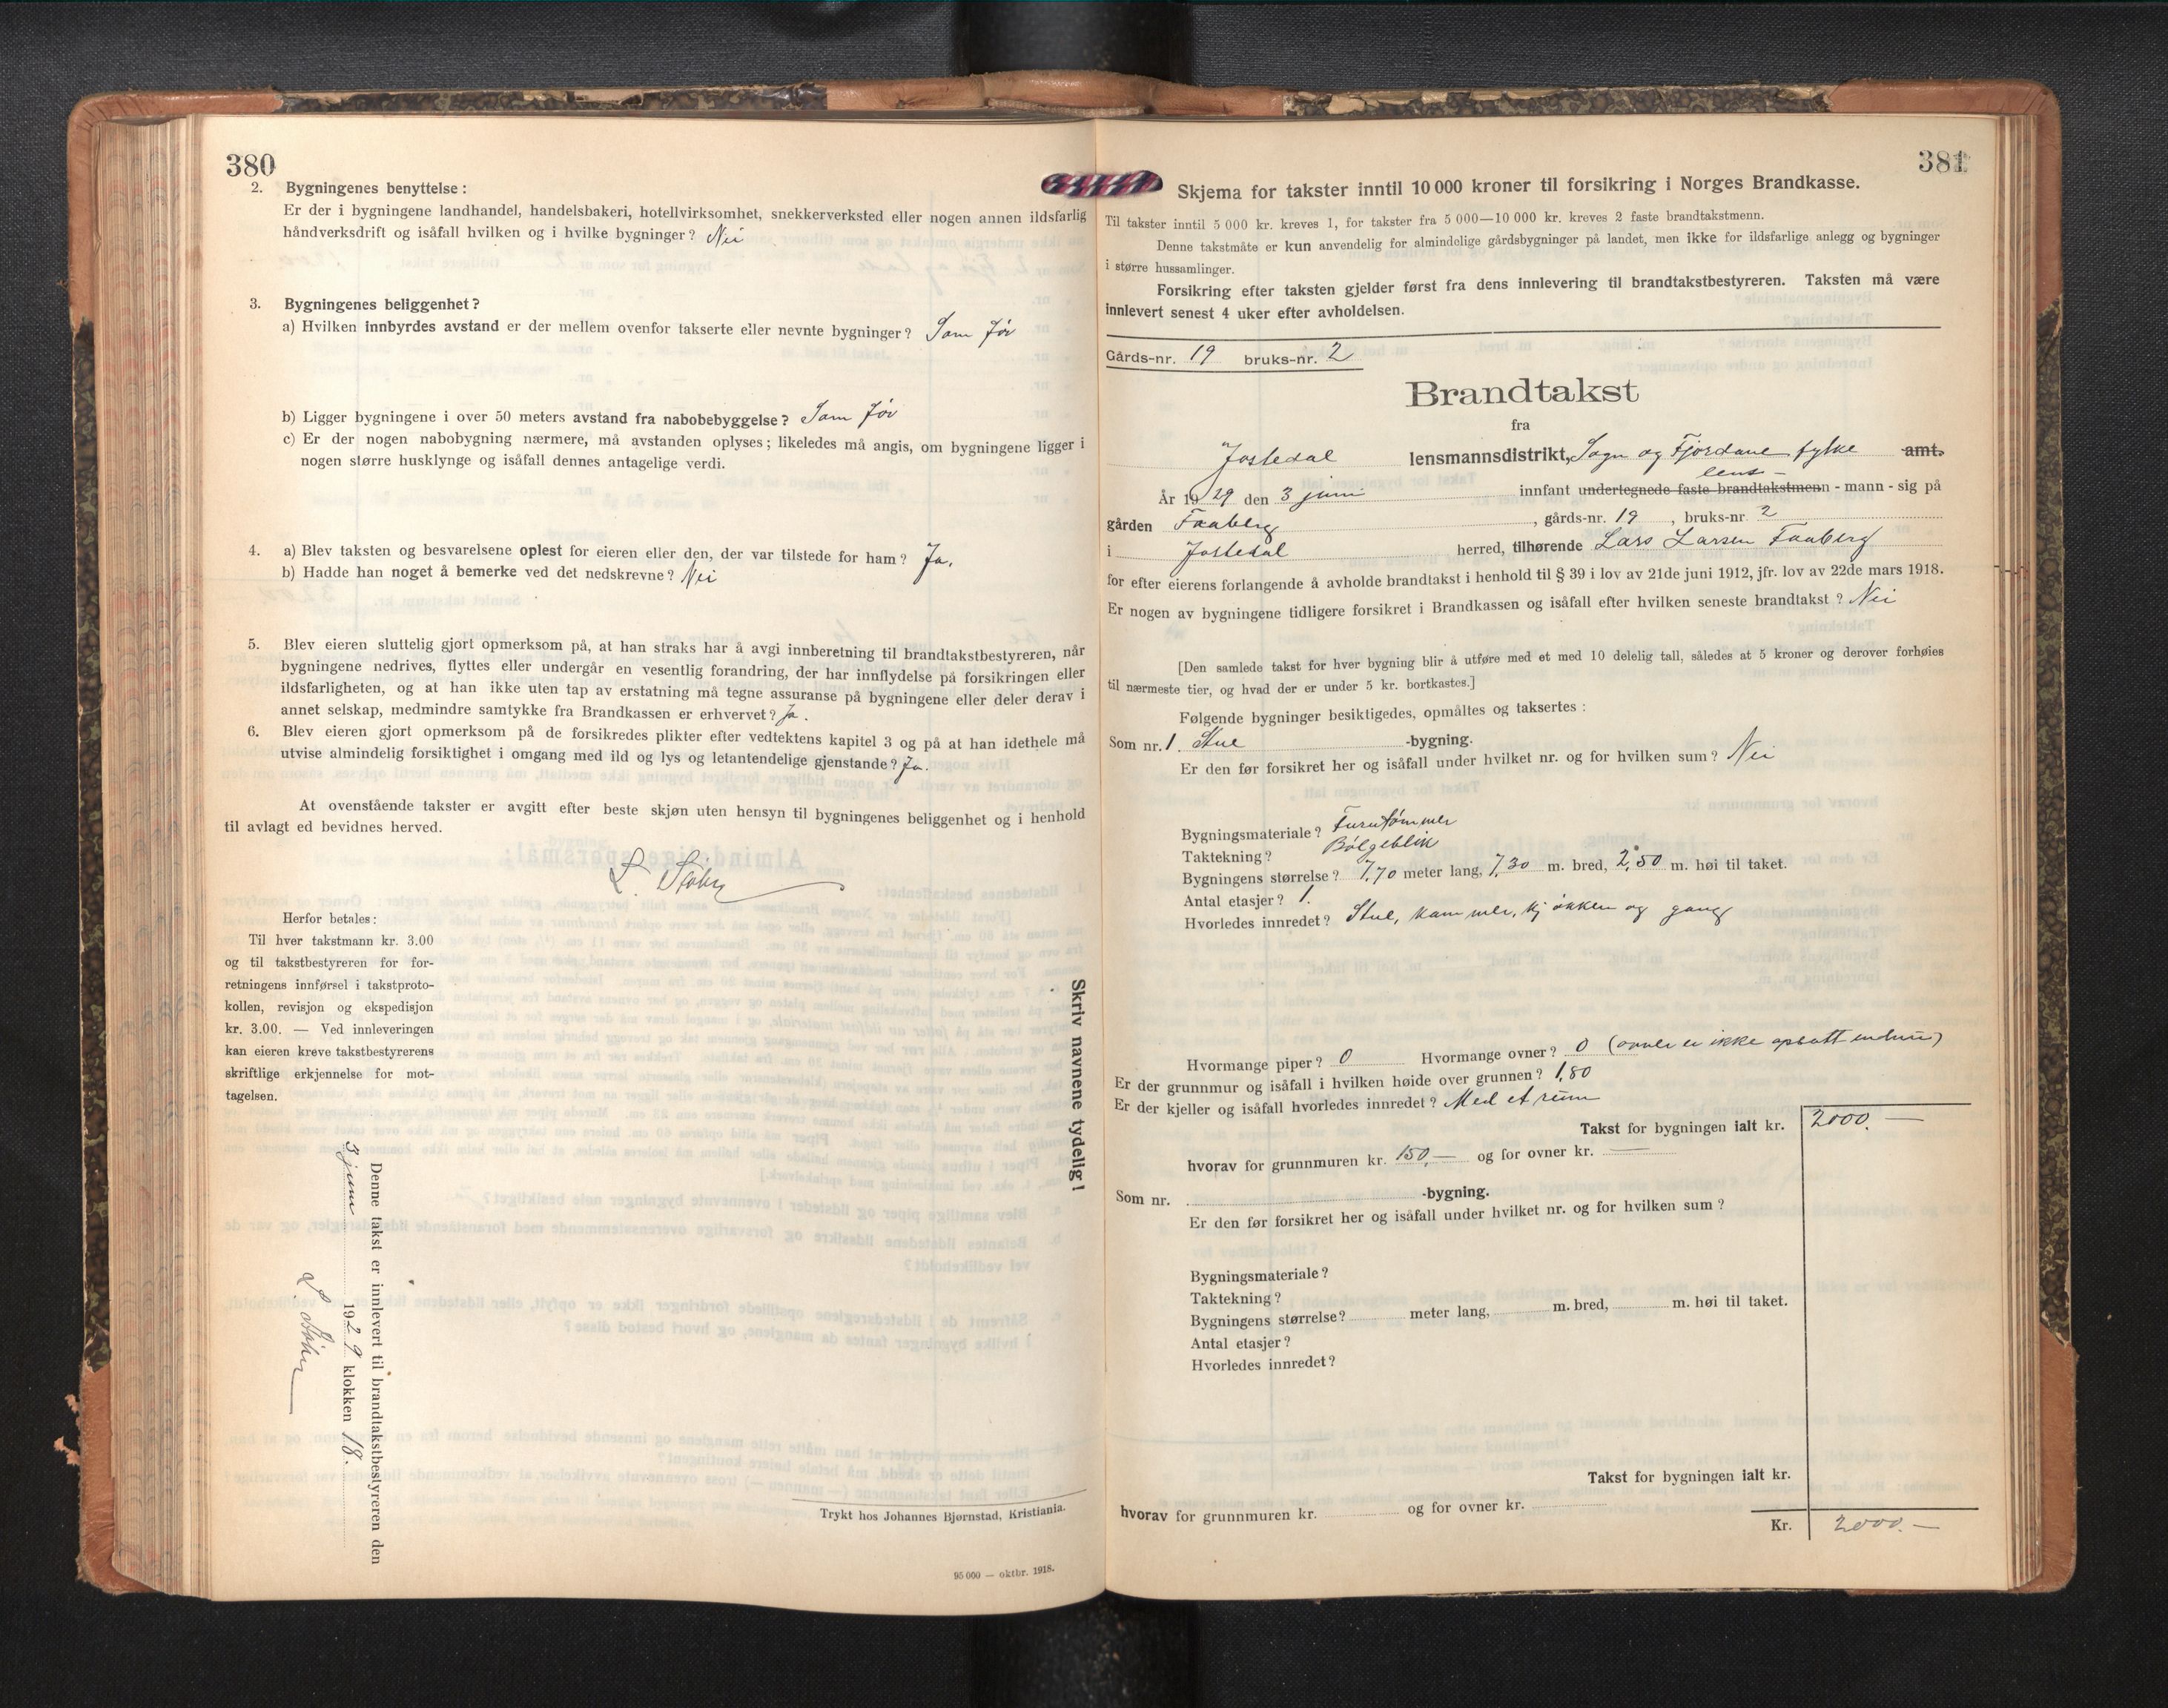 380
2. Bygningenes benyttelse :
Er der i bygningene landhandel, handelsbakeri, hotellvirksomhet, snekkerverksted eller nogen annen ildsfarlig
håndverksdrift og isåfall hvilken og i hvilke bygninger ? Nei
3. Bygningenes beliggenhet ?
a) Hvilken innbyrdes avstand er der mellem ovenfor takserte eller nevnte bygninger ? Som før
b) Ligger bygningene i over 50 meters avstand fra nabobebyggelse ? Som før
c) Er der nogen nabobygning nærmere, må avstanden oplyses ; likeledes må angis, om bygningene ligger i
nogen større husklynge og isåfall dennes antagelige verdi.
4. a) Blev taksten og besvarelsene oplest for eieren eller den, der var tilstede for ham ? Ja.
b) Hadde han noget å bemerke ved det nedskrevne ? Nei
5. Blev eieren sluttelig gjort opmerksom på, at han straks har å avgi innberetning til brandtakstbestyreren, når
bygningene nedrives, flyttes eller undergår en vesentlig forandring, der har innflydelse på forsikringen eller
ildsfarligheten, og at han ikke uten tap av erstatning må tegne assuranse på bygningene eller deler derav i
annet selskap, medmindre samtykke fra Brandkassen er erhvervet ? Ja.
6. Blev eieren gjort opmerksom på de forsikredes plikter efter vedtektens kapitel 3 og på at han idethele må
utvise almindelig forsiktighet i omgang med ild og lys og letantendelige gjenstande ? Ja.
At ovenstående takster er avgitt efter beste skjøn uten hensyn til bygningenes beliggenhet og i henhold
til avlagt ed bevidnes herved.
Herfor betales :
Til hver takstmann kr. 3.00
og til takstbestyreren for for-
retningens innførsel i takstproto-
kollen, revisjon og ekspedisjon
kr. 3.00. — Ved innleveringen
kan eieren kreve takstbestyrerens
skriftlige erkjennelse for mot-
tagelsen.
Skriv navnene tydelig !
Denne takst er innlevert til brandtakstbestyreren den
3 juni 1929 klokken 18.
Trykt hos Johannes Bjørnstad, Kristiania.
95 000 — oktbr. 1918.
381
Skjema for takster inntil 10 000 kroner til forsikring i Norges Brandkasse.
Til takster inntil 5 000 kr. kreves 1, for takster fra 5 000—10 000 kr. kreves 2 faste brandtakstmenn.
Denne takstmåte er kun anvendelig for almindelige gårdsbygninger på landet, men ikke for ildsfarlige anlegg og bygninger
i større hussamlinger.
Forsikring efter taksten gjelder først fra dens innlevering til brandtakstbestyreren. Taksten må være
innlevert senest 4 uker efter avholdelsen.
Gårds-nr. 19 bruks-nr. 2
Brandtakst
fra
Jostedal lensmannsdistrikt, Sogn og Fjordane fylke amt.
lens-
År 1929 den 3 juni innfant undertegnede faste brandtakstmenn - mann - sig på
gården Faaberg , gårds-nr. 19 , bruks-nr 2
i Jostedal herred, tilhørende Lars Larsen Faaberg
for efter eierens forlangende å avholde brandtakst i henhold til § 39 i lov av 21de juni 1912, jfr. lov av 22de mars 1918.
Er nogen av bygningene tidligere forsikret i Brandkassen og isåfall efter hvilken seneste brandtakst ? Nei
[Den samlede takst for hver bygning blir å utføre med et med 10 delelig tall, således at 5 kroner og derover forhøies
til nærmeste tier, og hvad der er under 5 kr. bortkastes.]
Følgende bygninger besiktigedes, opmåltes og taksertes :
Som nr. 1. Stue -bygning.
Er den før forsikret her og isåfall under hvilket nr. og for hvilken sum ? Nei
Bygningsmateriale ? Furutømmer
Taktekning ? Bølgeblik
Bygningens størrelse ? 7,70 meter lang, 7,30 m. bred, 2,50 m. høi til taket.
Antal etasjer ? 1.
Hvorledes innredet ? Stue, kammer, kjøkken og gang
Hvormange piper ? 0 Hvormange ovner ? 0 (ovner er ikke opsatt endnu)
Er der grunnmur og isåfall i hvilken høide over grunnen ? 1,80
Er der kjeller og isåfall hvorledes innredet ? Med et rum
Takst for bygningen ialt kr. 2000. —
hvorav for grunnmuren kr. 150,— og for ovner kr. —
Som nr. -bygning.
Er den før forsikret her og isåfall under hvilket nr. og for hvilken sum ?
Bygningsmateriale ?
Taktekning ?
Bygningens størrelse ? meter lang, m. bred, m. høi til taket.
Antal etasjer ?
Hvorledes innredet ?
Takst for bygningen ialt kr.
hvorav for grunnmuren kr. og for ovner kr.
Kr. 2000.—